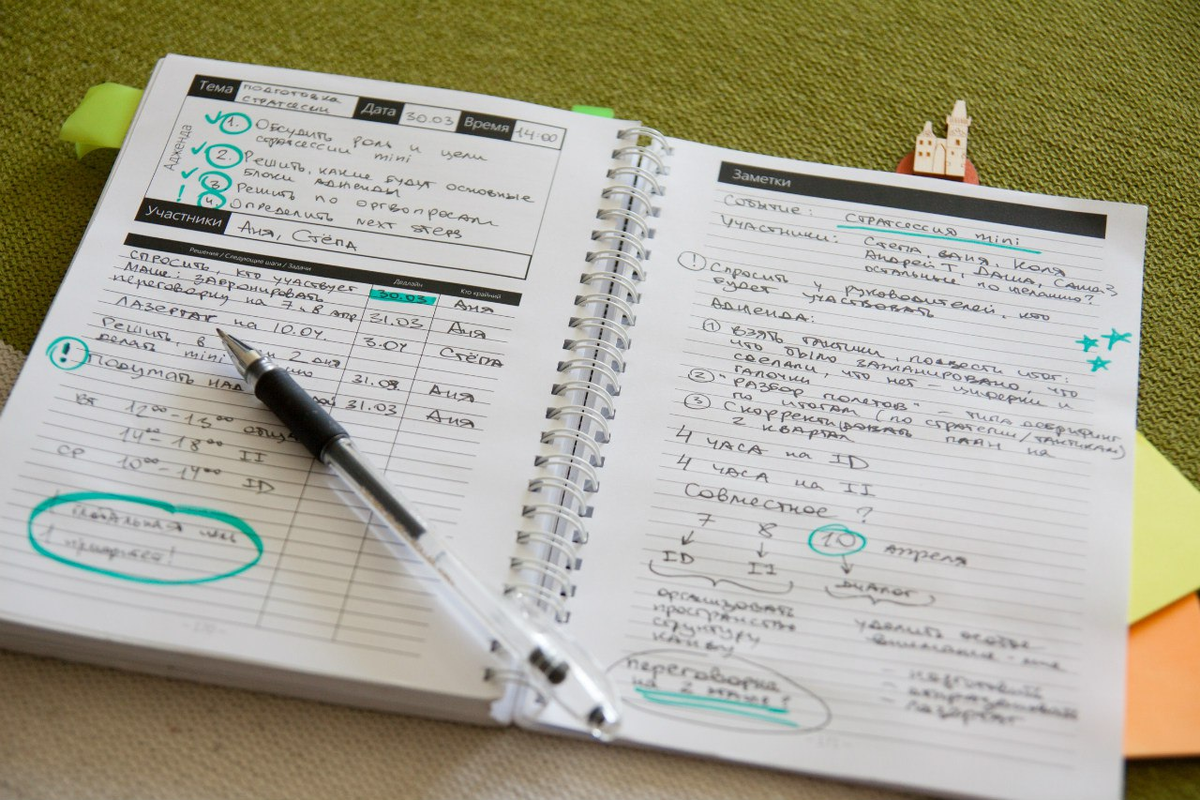 Тема подготовка стратсессии Дата 30.03 Время 14:00
Адженда
1. Обсудить роль и цели
стратсессии mini
2. Решить, какие будут основные
блоки адженды
3. Решить по оргвопросам
4. Определить next steps
Участники Аня, Стёпа
Решения / Следующие шаги / Задачи Дедлайн Кто крайний
Спросить, кто участвует 30.03 Аня
Маше: забронировать
переговорку на 7 и 8 апр 31.03 Аня
Лазертаг на 10.04. 3.04 Стёпа
Решить, в 2 дня
делать mini 31.03 Аня
! Подумать над 31.03 Аня
вт 12⁰⁰-13⁰⁰
14-18⁰⁰ II
ср 10⁰⁰-14⁰⁰ ID
1 приоритет!
Заметки
Событие: стратсессия mini
Участники: Стёпа, Ваня, Коля
Андрей Т, Даша, Саша?
остальные по желанию?
! Спросить у руководителей, кто
будет участвовать
Адженда:
1 Взять тактики, подвести итог:
что было запланировано, что
сделали, что нет – циферки и
галочки
2 "Разбор полетов" – типа дебрифинг
по итогам (по стратегии/тактикам)
3 Скорректировать план на
2 квартал
4 часа на ID
4 часа на II
Совместное?
7 8 10 апреля
ID II диалог
организовать
пространство
структуру
канву
уделить особое
внимание
переговорка
на 2
- лазертаг